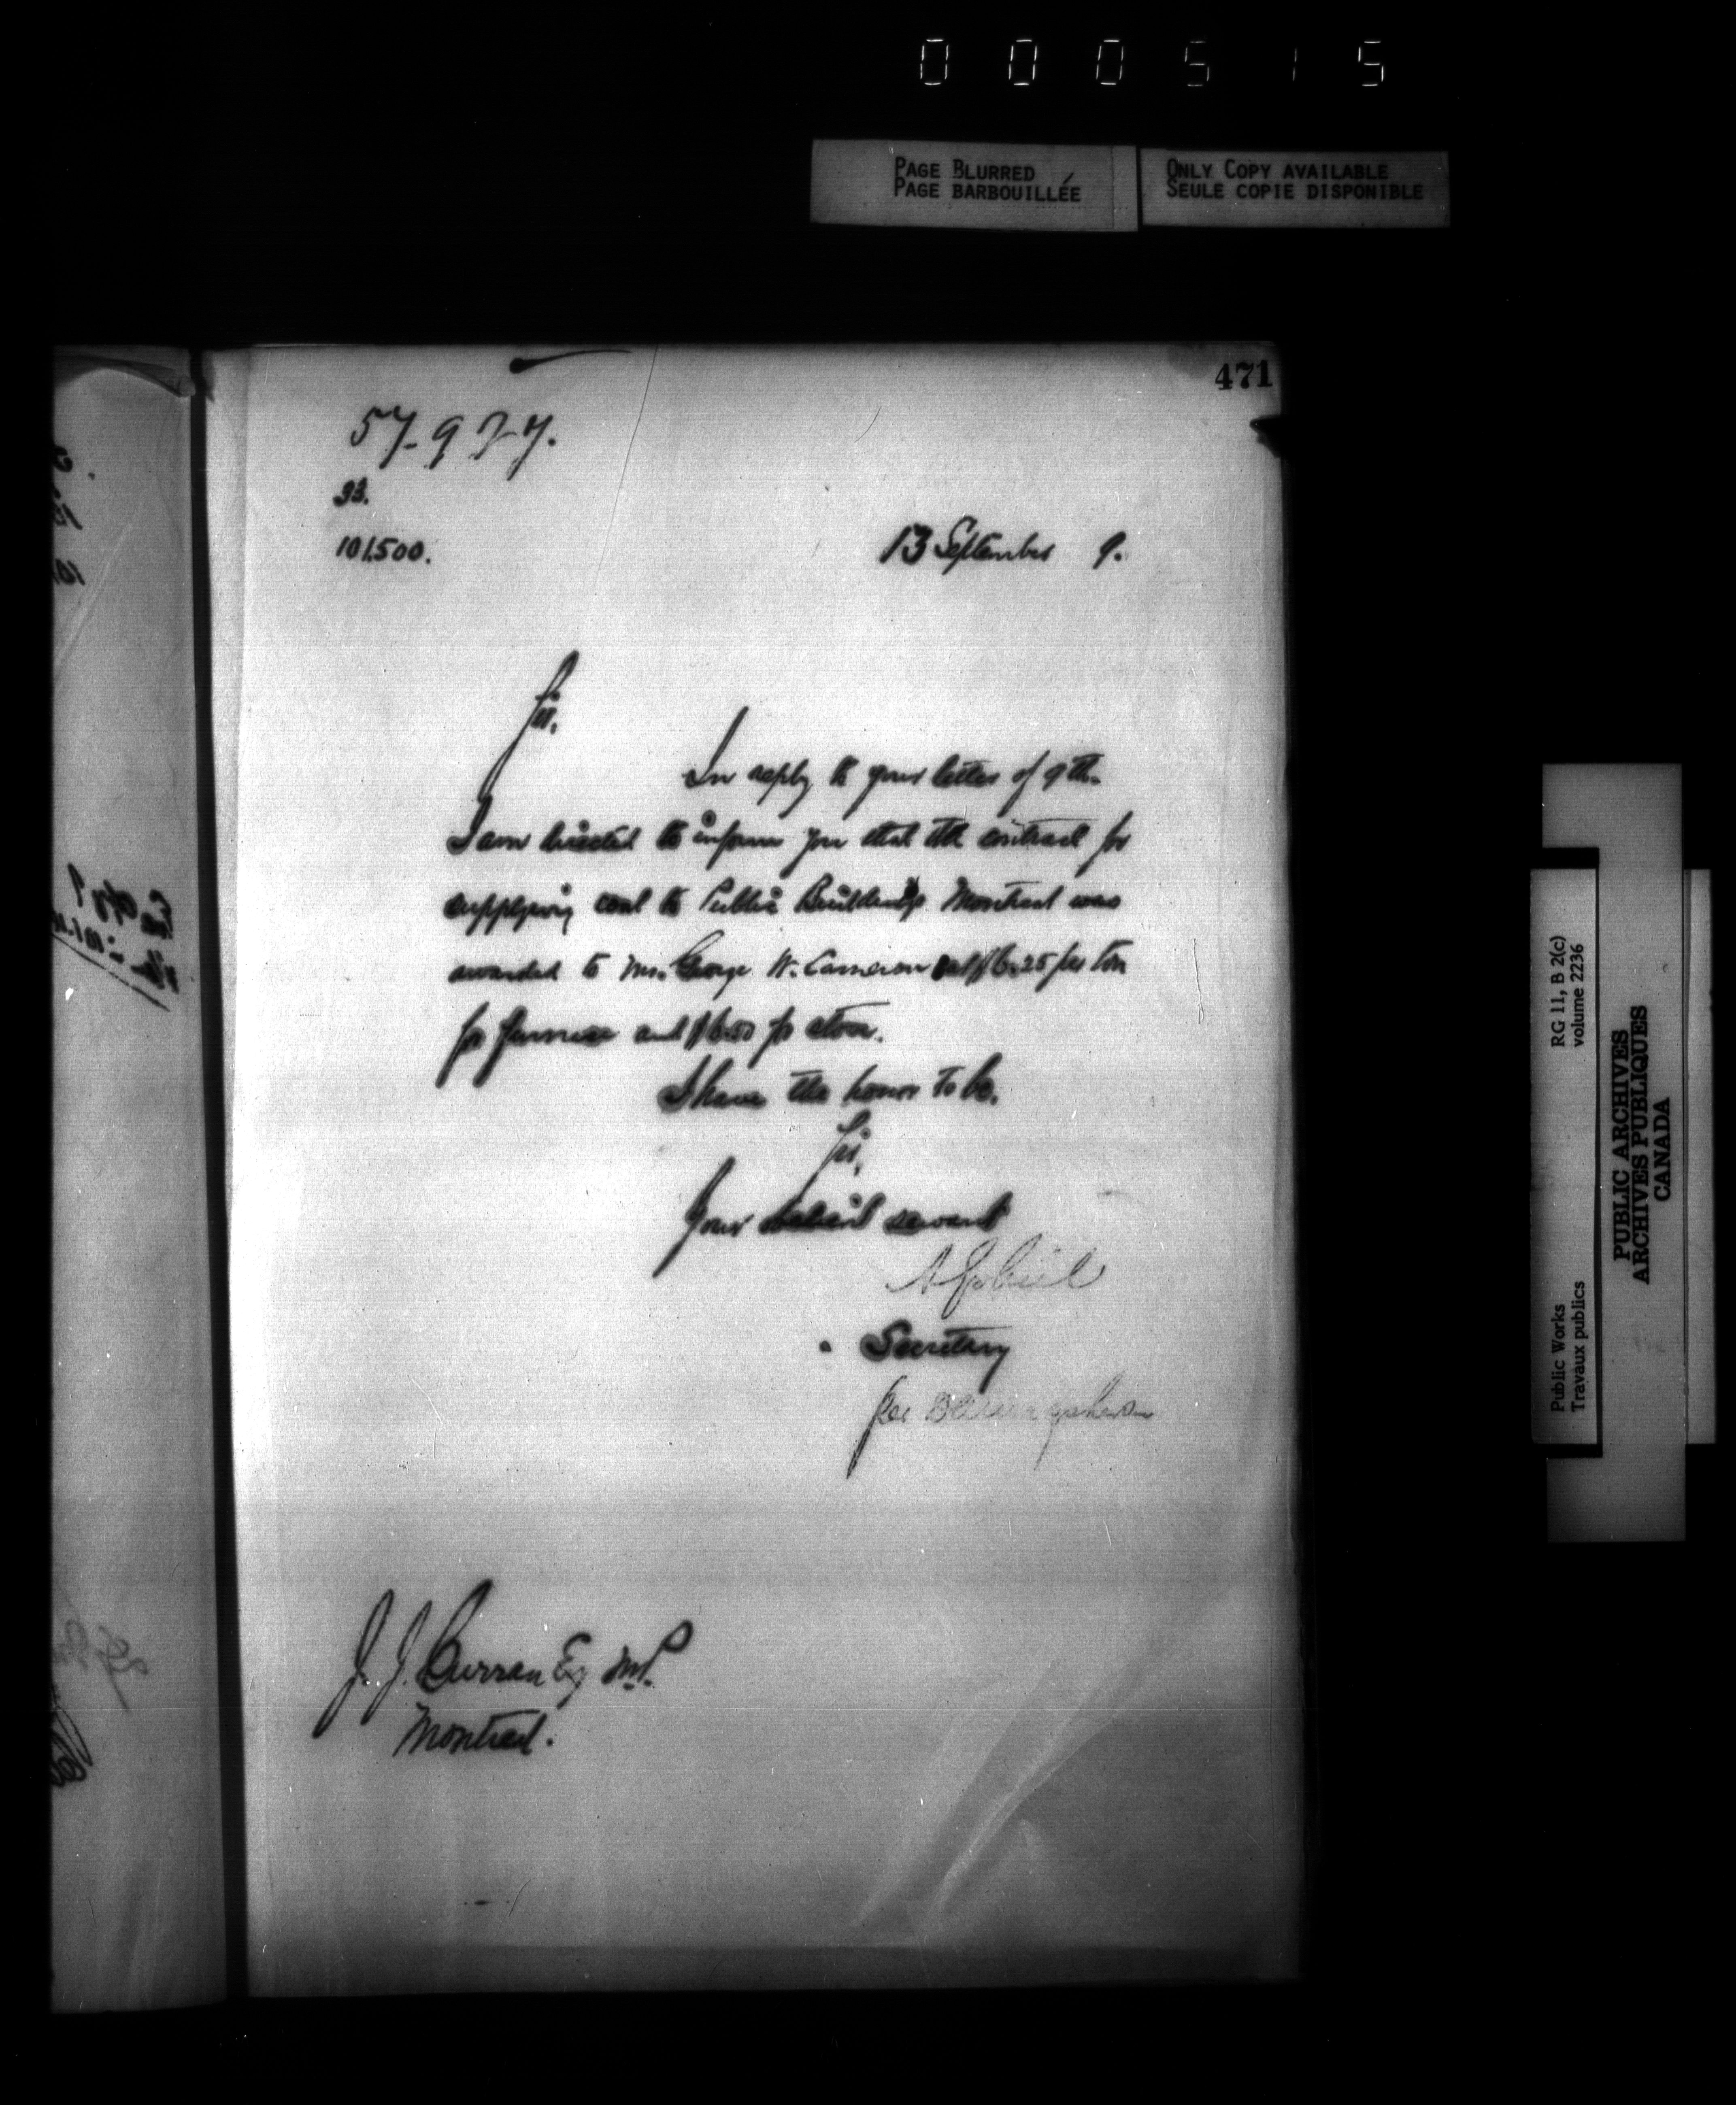 000515
PAGE BLURRED
PAGE BARBOUILLÉE
ONLY COPY AVAILABLE
SEULE COPIE DISPONIBLE
471
57-927.
33.
101,500.
13 September 9.
Sir,
In reply to your letter of 9th.
I am directed to inform you that the contract for
supplying coal to Public Buildings Montreal was
awarded to Mr. George W. Cameron at $6.25 per ton
for furnace and $6.50 for stove.
I have the honor to be.
Sir,
Your obedient servant
A Gobeil
Secretary
per
J. J. Curran Esq M.P.
Montreal.
Public Works
Travaux publics
RG 11, B 2(c)
volume 2236
PUBLIC ARCHIVES
ARCHIVES PUBLIQUES
CANADA